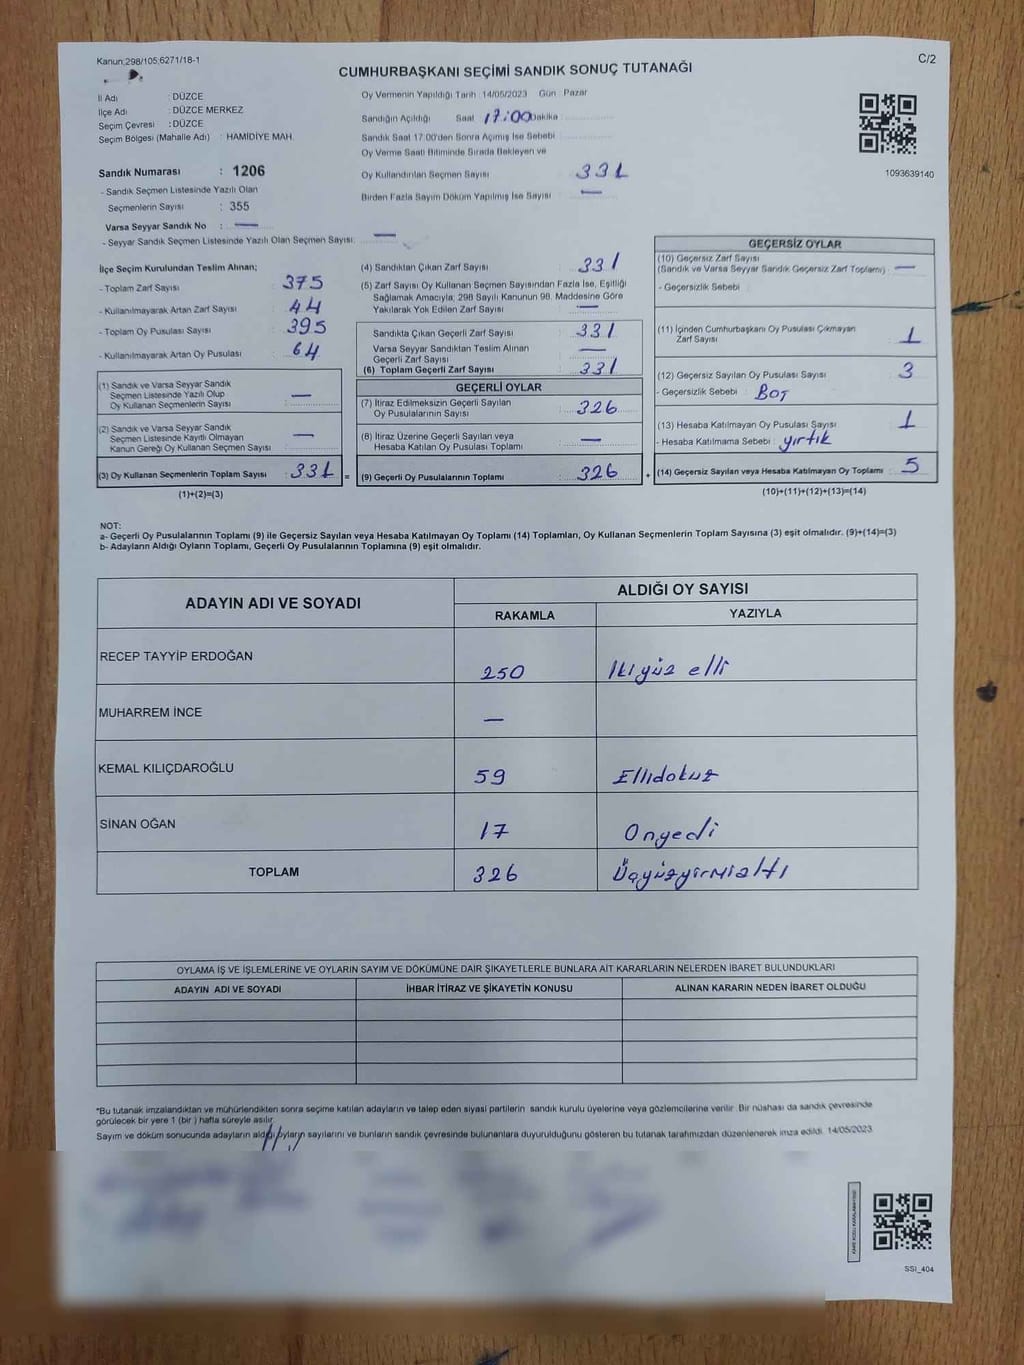 Kanun;298/105;6271/18-1
C/2
CUMHURBAŞKANI SEÇİMİ SANDIK SONUÇ TUTANAĞI
İl Adı : DÜZCE
İlçe Adı : DÜZCE MERKEZ
Seçim Çevresi : DÜZCE
Seçim Bölgesi (Mahalle Adı) : HAMİDİYE MAH.
Oy Vermenin Yapıldığı Tarih :14/05/2023 Gün : Pazar
Sandığın Açıldığı Saat 17:00 Dakika
Sandık Saat 17:00'den Sonra Açımış İse Sebebi :
Oy Verme Saati Bitiminde Sırada Bekleyen ve
Oy Kullandırılan Seçmen Sayısı 331
Birden Fazla Sayım Döküm Yapılmış İse Sayısı : —
1093639140
Sandık Numarası : 1206
- Sandık Seçmen Listesinde Yazılı Olan
Seçmenlerin Sayısı : 355
Varsa Seyyar Sandık No : —
- Seyyar Sandık Seçmen Listesinde Yazılı Olan Seçmen Sayısı: —
İlçe Seçim Kurulundan Teslim Alınan;
- Toplam Zarf Sayısı : 375
- Kullanılmayarak Artan Zarf Sayısı : 44
- Toplam Oy Pusulası Sayısı : 395
- Kullanılmayarak Artan Oy Pusulası : 64
(1) Sandık ve Varsa Seyyar Sandık
Seçmen Listesinde Yazılı Olup
Oy Kullanan Seçmenlerin Sayısı : —
(2) Sandık ve Varsa Seyyar Sandık
Seçmen Listesinde Kayıtlı Olmayan
Kanun Gereği Oy Kullanan Seçmen Sayısı : —
(3) Oy Kullanan Seçmenlerin Toplam Sayısı : 331 =
(1)+(2)=(3)
(4) Sandıktan Çıkan Zarf Sayısı : 331
(5) Zarf Sayısı Oy Kullanan Seçmen Sayısından Fazla İse, Eşitliği
Sağlamak Amacıyla; 298 Sayılı Kanunun 98. Maddesine Göre
Yakılarak Yok Edilen Zarf Sayısı : —
Sandıkta Çıkan Geçerli Zarf Sayısı : 331
Varsa Seyyar Sandıktan Teslim Alınan
Geçerli Zarf Sayısı : —
(6) Toplam Geçerli Zarf Sayısı : 331
GEÇERLİ OYLAR
(7) İtiraz Edilmeksizin Geçerli Sayılan
Oy Pusulalarının Sayısı : 326
(8) İtiraz Üzerine Geçerli Sayılan veya
Hesaba Katılan Oy Pusulası Toplamı : —
(9) Geçerli Oy Pusulalarının Toplamı : 326 +
GEÇERSİZ OYLAR
(10) Geçersiz Zarf Sayısı
(Sandık ve Varsa Seyyar Sandık Geçersiz Zarf Toplamı) : —
- Geçersizlik Sebebi :
(11) İçinden Cumhurbaşkanı Oy Pusulası Çıkmayan
Zarf Sayısı : 1
(12) Geçersiz Sayılan Oy Pusulası Sayısı : 3
- Geçersizlik Sebebi : BOŞ
(13) Hesaba Katılmayan Oy Pusulası Sayısı : 1
- Hesaba Katılmama Sebebi : yırtık
(14) Geçersiz Sayılan veya Hesaba Katılmayan Oy Toplamı : 5
(10)+(11)+(12)+(13)=(14)
NOT:
a- Geçerli Oy Pusulalarının Toplamı (9) ile Geçersiz Sayılan veya Hesaba Katılmayan Oy Toplamı (14) Toplamları, Oy Kullanan Seçmenlerin Toplam Sayısına (3) eşit olmalıdır. (9)+(14)=(3)
b- Adayların Aldığı Oyların Toplamı, Geçerli Oy Pusulalarının Toplamına (9) eşit olmalıdır.
ADAYIN ADI VE SOYADI
ALDIĞI OY SAYISI
RAKAMLA YAZIYLA
RECEP TAYYİP ERDOĞAN 250 İkiyüz elli
MUHARREM İNCE —
KEMAL KILIÇDAROĞLU 59 Ellidokuz
SİNAN OĞAN 17 Onyedi
TOPLAM 326 Üçyüzyirmialtı
OYLAMA İŞ VE İŞLEMLERİNE VE OYLARIN SAYIM VE DÖKÜMÜNE DAİR ŞİKAYETLERLE BUNLARA AİT KARARLARIN NELERDEN İBARET BULUNDUKLARI
ADAYIN ADI VE SOYADI İHBAR İTİRAZ VE ŞİKAYETİN KONUSU ALINAN KARARIN NEDEN İBARET OLDUĞU
*Bu tutanak imzalandıktan ve mühürlendikten sonra seçime katılan adayların ve talep eden siyasi partilerin sandık kurulu üyelerine veya gözlemcilerine verilir. Bir nüshası da sandık çevresinde
görülecek bir yere 1 (bir ) hafta süreyle asılır.
Sayım ve döküm sonucunda adayların aldığı oyların sayılarını ve bunların sandık çevresinde bulunanlara duyurulduğunu gösteren bu tutanak tarafımızdan düzenlenerek imza edildi. 14/05/2023
SSI_404